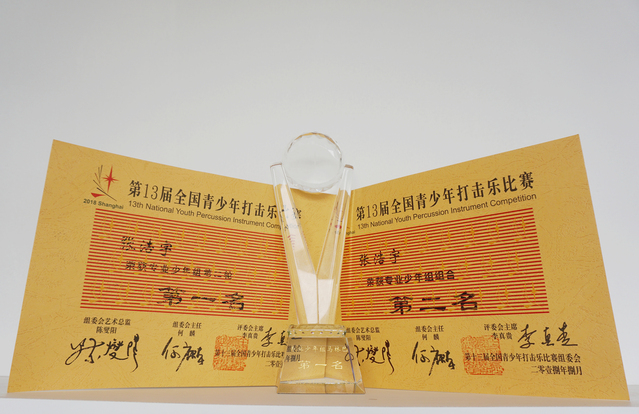 第13届全国青少年打击乐比赛
13th National Youth Percussion Instrument
2018 Shanghai
张浩宇
荣获专业少年组
第一名
组委会艺术总监
陈燮阳
组委会主任
何麟
评委会主席
李真贵
第十三届全国青少年打击乐
二零壹
第13届全国青少年打击乐比赛
13th National Youth Percussion Instrument Competition
张浩宇
荣获专业少年组组合
第二名
组委会主任
何麟
评委会主席
李真贵
第十三届全国青少年打击乐比赛组委会
二零壹捌年捌月
第一名